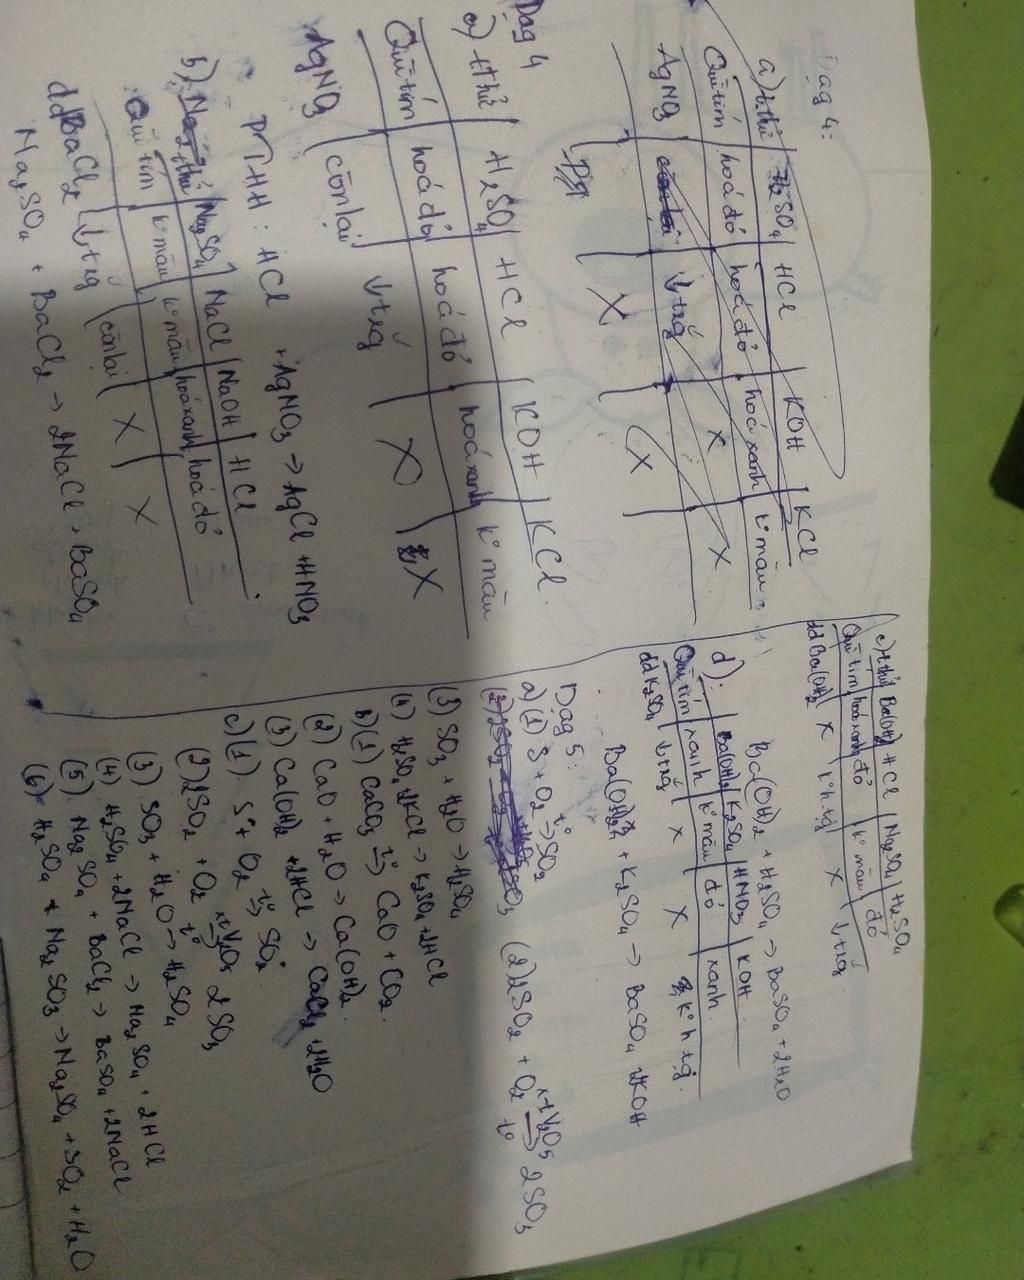 Dạg 4:
a) t.thử | H2SO4 | HCl | KOH | KCl
Quì tím | hoá đỏ | hoá đỏ | hoá xanh | k° màu
AgNO3 | ↓ trắg | X | X
X | X
Dạg 4
a) t.thử | H2SO4 | HCl | KOH | KCl.
Quì tím | hoá đỏ | hoá đỏ | hoá xanh | k° màu
AgNO3 | còn lại | ↓ trắg | X | X
PTHH: HCl + AgNO3 → AgCl + HNO3
b) t.thử | Na2SO4 | NaCl | NaOH | HCl
Quì tím | k° màu | k° màu | hoá xanh | hoá đỏ
ddBaCl2 | ↓ trắg | còn lại | X | X
Na2SO4 + BaCl2 → 2NaCl + BaSO4
c) t.thử | Ba(OH)2 | HCl | Na2SO4 | H2SO4
Quì tím | hoá xanh | đỏ | k° màu | đỏ
dd Ba(OH)2 | X | k° h.tg | X | ↓ trắg
Ba(OH)2 + H2SO4 → BaSO4 + 2H2O
d). Ba(OH)2 | K2SO4 | HNO3 | KOH
Quì tím | xanh | k° màu | đỏ | xanh.
dd K2SO4 | ↓ trắg | X | X | k° h tg.
Ba(OH)2 + K2SO4 → BaSO4 + 2KOH
Dạg 5:
a) (1) S + O2 t°→ SO2
(2) 2SO2 + O2 xt V2O5 → t° 2SO3
(3) SO3 + H2O → H2SO4
(4) H2SO4 + 2KCl → K2SO4 + 2HCl
b) (1) CaCO3 t°→ CaO + CO2.
(2) CaO + H2O → Ca(OH)2.
(3) Ca(OH)2 + 2HCl → CaCl2 + 2H2O
c) (1). S + O2 t°→ SO2
(2) 2SO2 + O2 xt V2O5 → t° 2SO3
(3) SO3 + H2O → H2SO4
(4) H2SO4 + 2NaCl → Na2SO4 + 2HCl
(5) Na2SO4 + BaCl2 → BaSO4 + 2NaCl
(6) H2SO4 + Na2SO3 → Na2SO4 + SO2 + H2O